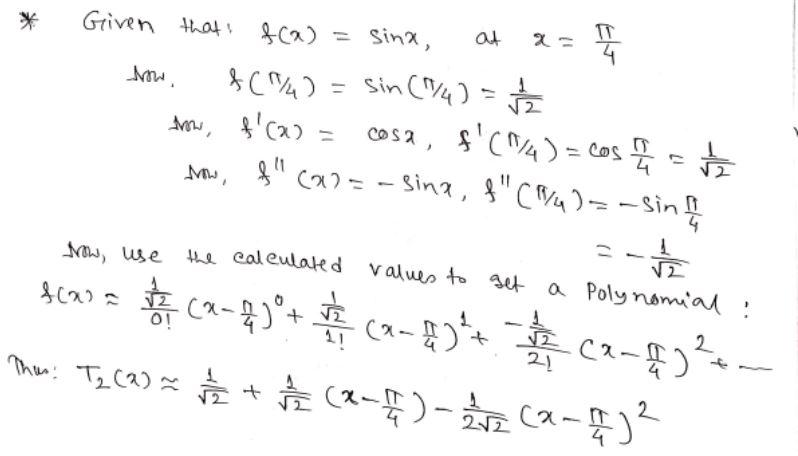 * Given that: f(x) = sinx, at x = π/4
Now, f(π/4) = sin(π/4) = 1/√2
Now, f'(x) = cosx, f'(π/4) = cos π/4 = 1/√2
Now, f''(x) = - sinx, f''(π/4) = - sin π/4
= - 1/√2
Now, use the calculated values to get a Polynomial :
f(x) ≈ (1/√2)/0! (x-π/4)^0 + (1/√2)/1! (x-π/4)^1 + (-1/√2)/2! (x-π/4)^2 + ---
Thus: T₂(x) ≈ 1/√2 + 1/√2 (x-π/4) - 1/2√2 (x-π/4)^2